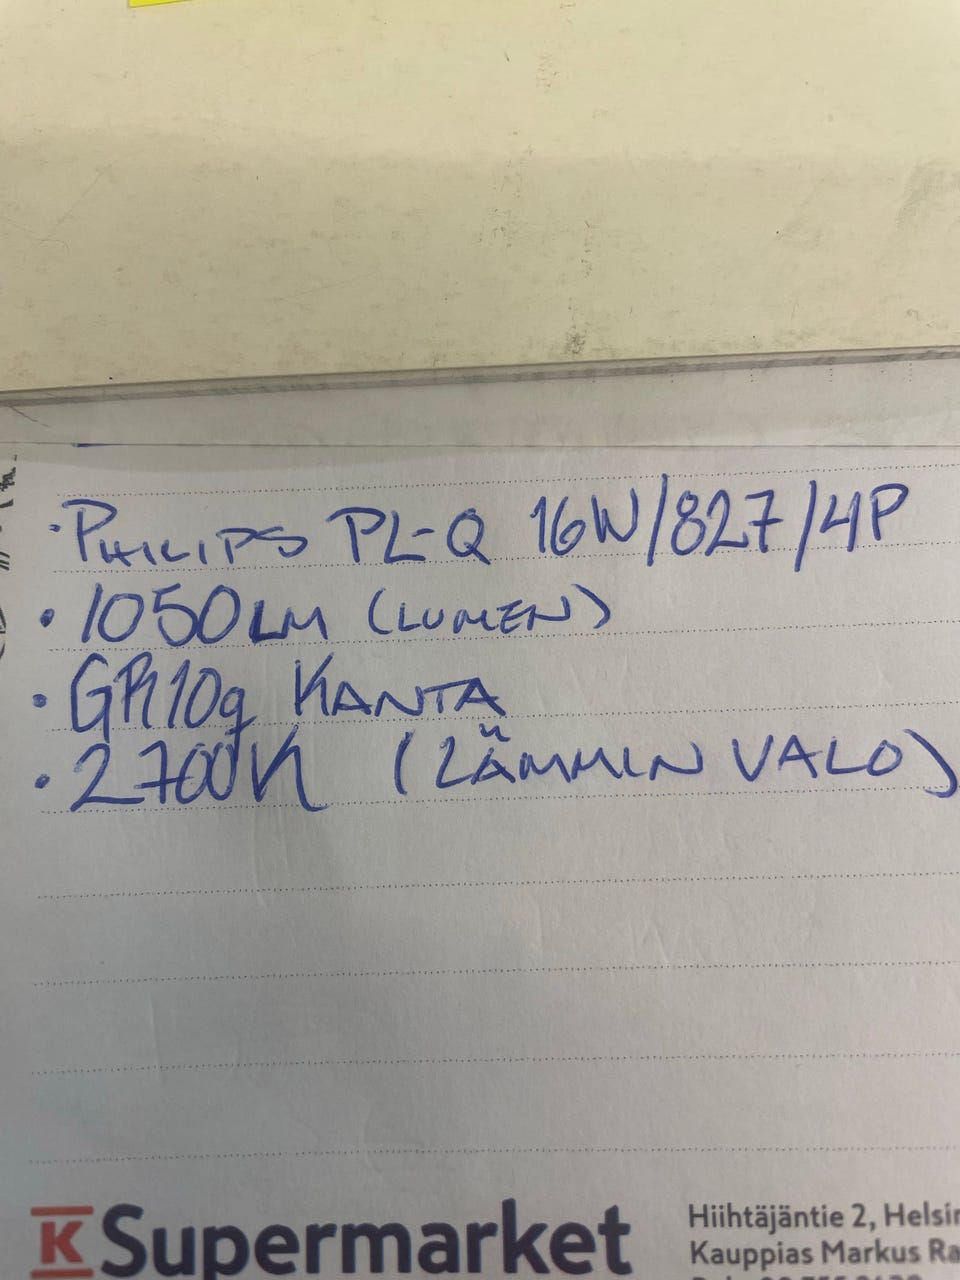 ·PHILIPS PL-Q 16W/827/4P
• 1050LM (LUMEN)
• GR10q KANTA
• 2700K (LÄMMIN VALO)
K Supermarket
Hiihtäjäntie 2, Helsin
Kauppias Markus Ra